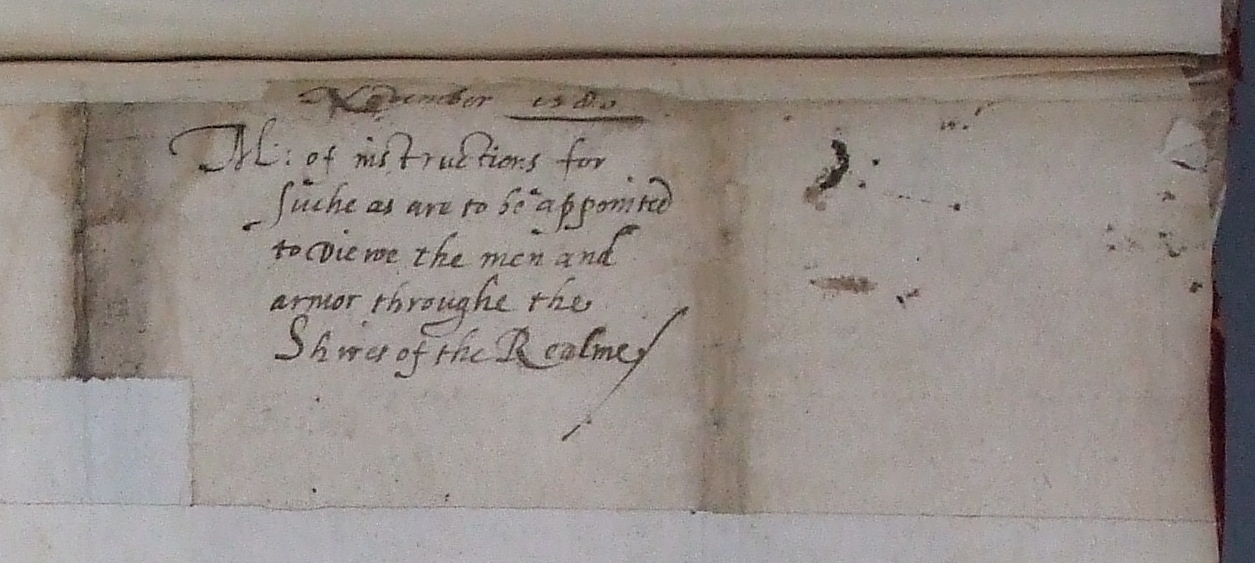 November 1580
M: of instructions for
suche as are to be appointed
to viewe the men and
armor throughe the
Shires of the Realme/